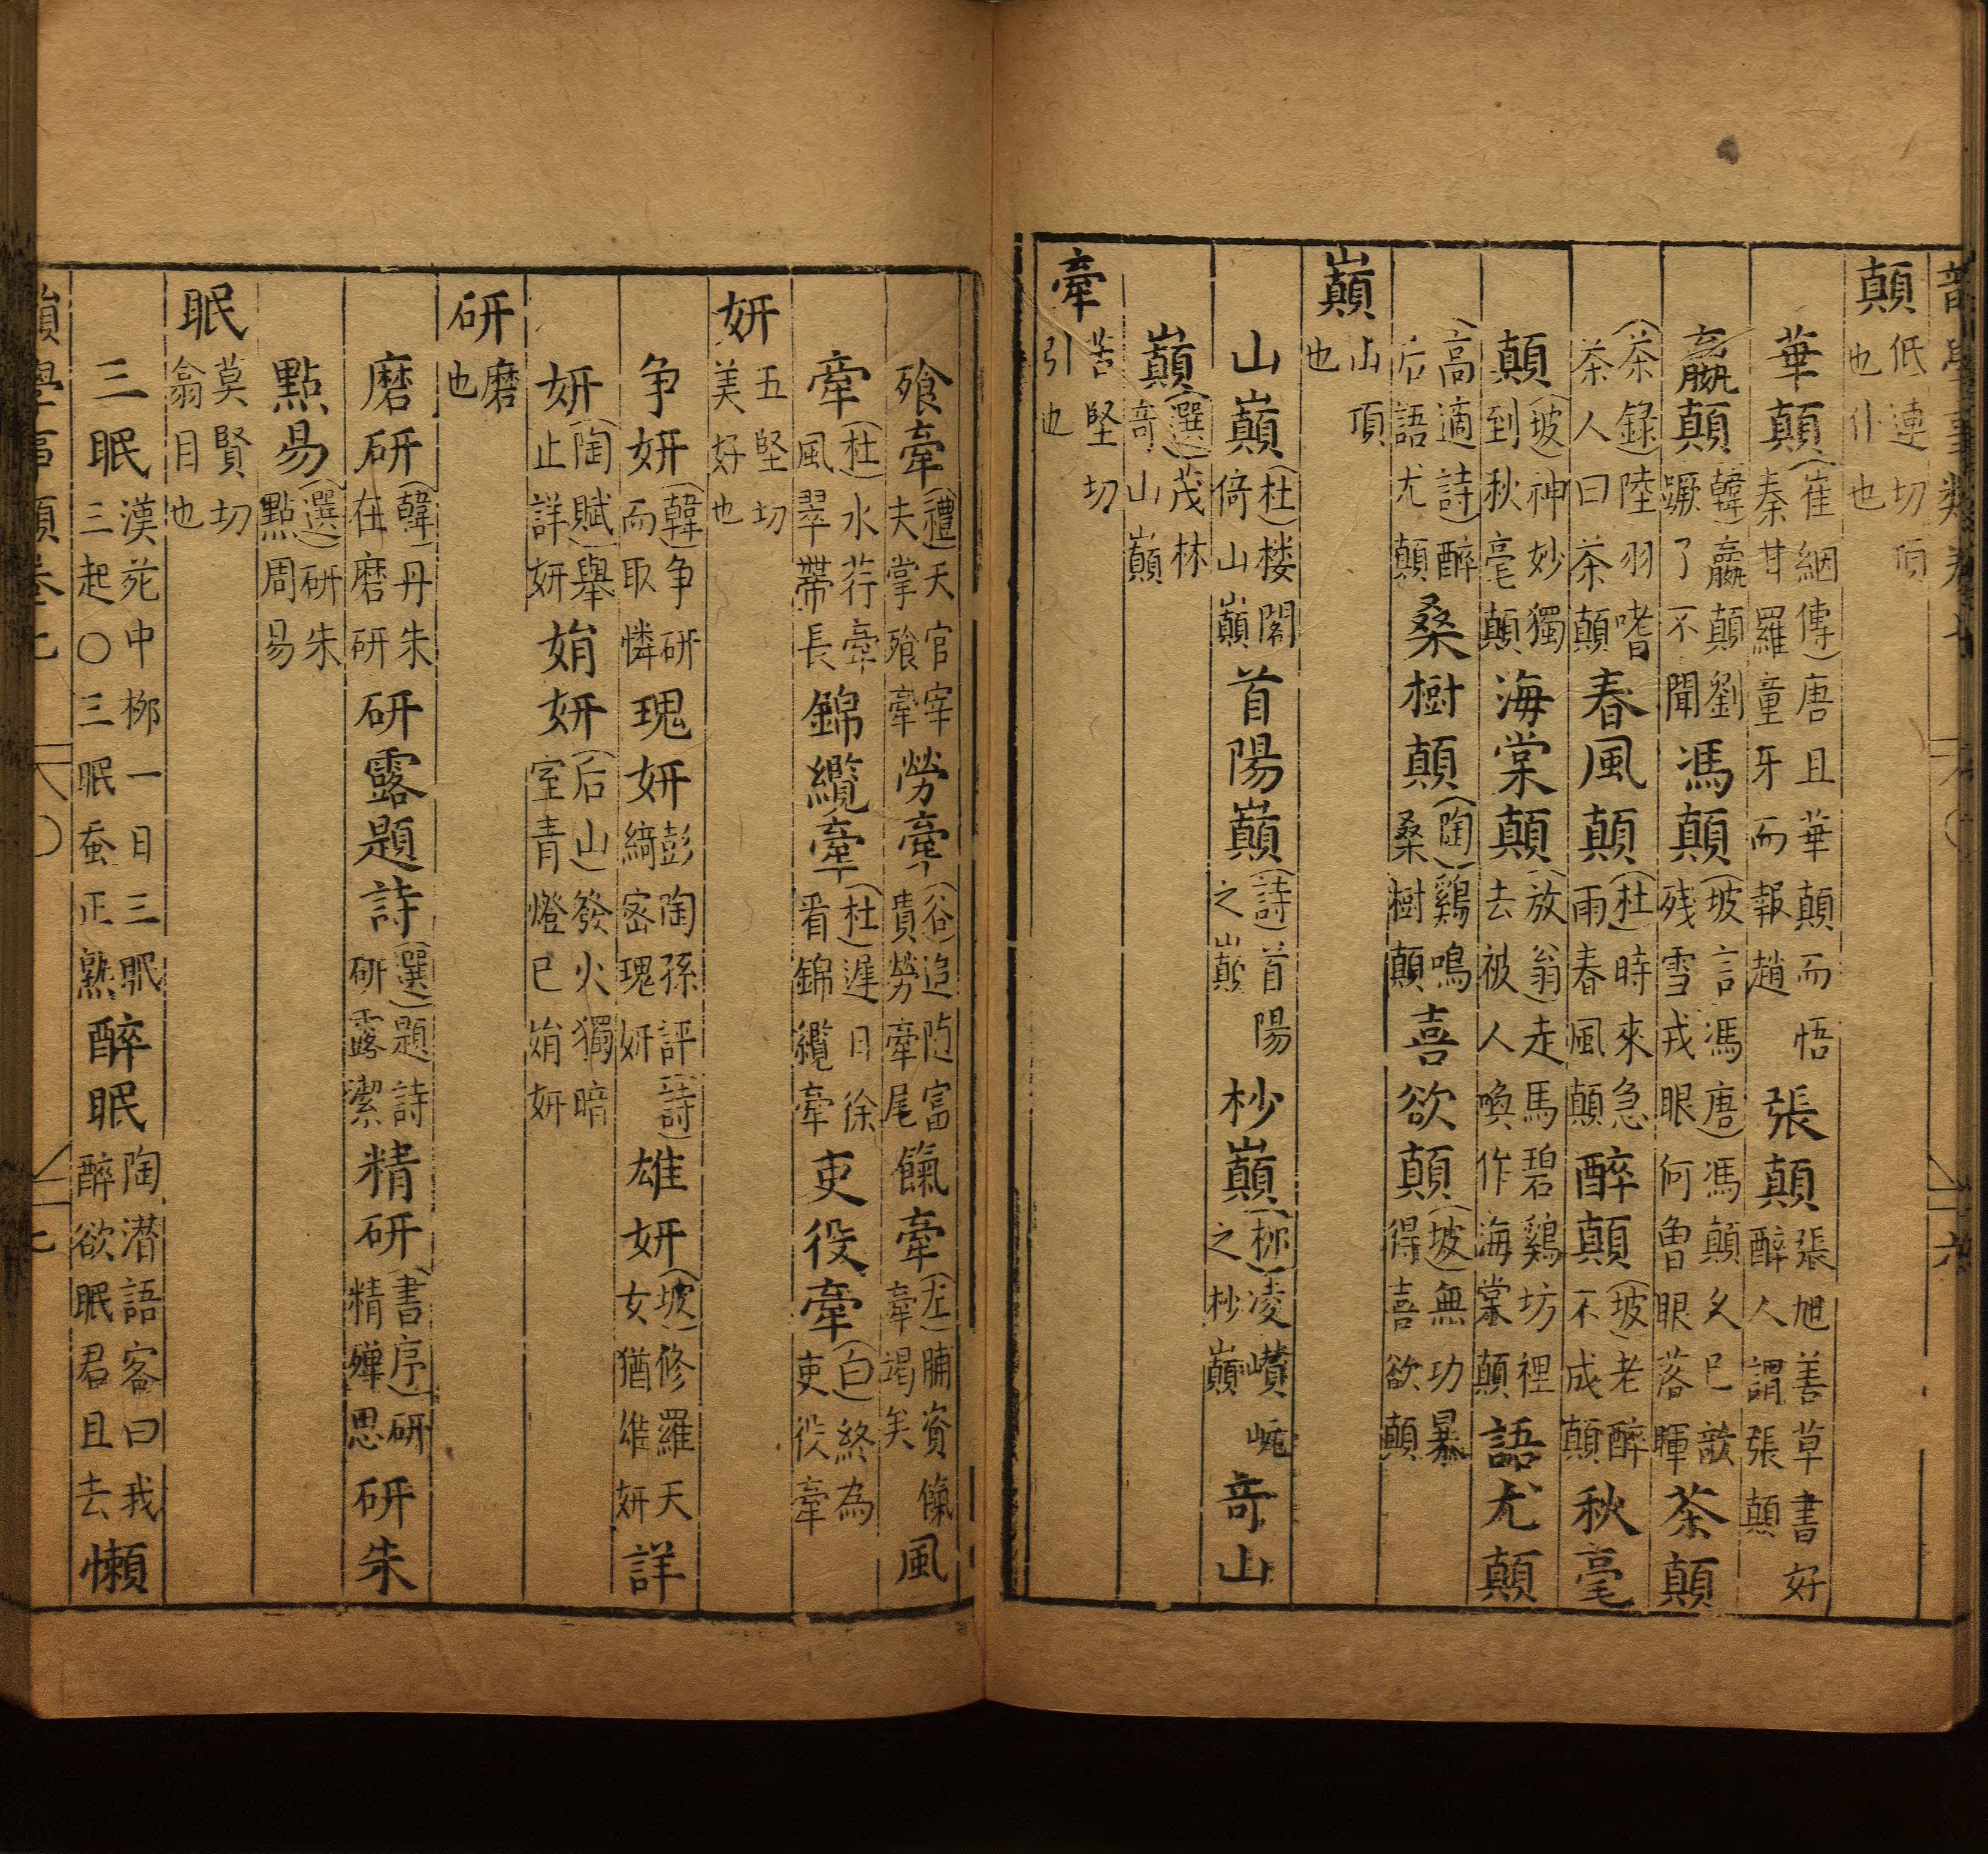 顛低連切頂也仆也
華顛(崔絪傳)唐且華顛而悟秦甘羅童牙而報趙張顛張旭善草書好醉人謂張顛
羸顛(韓)羸顛劉蹶了不聞馮顛(坡言馮唐)馮顛久已歆残雪戎眼何曾眼落暉茶顛
(茶錄)陸羽嗜茶人曰茶顛春風顛(杜)時來急雨春風顛醉顛(坡)老醉不成顛秋毫
顛(坡)神妙獨到秋毫顛海棠顛(放翁)走馬碧鷄坊裡去被人喚作海棠顛語尤顛
(高適詩)醉后語尤顛桑樹顛(陶)鷄鳴桑樹顛喜欲顛(坡)無功暴得喜欲顛
巔山頂也
山巔(杜)楼閣倚山巔首陽巔(詩)首陽之巔杪巔(柳)凌巑岏之杪巔奇山
巔(選)茂林奇山巔
牽苦堅切引也
飱牽(禮)天官宰夫掌飱牽勞牽(谷)追隨富貴勞牽尾餼牽(左)脯資餼牽竭矣風
牽(杜)水荇牽風翠帶長錦纜牽(杜)遲日徐看錦纜牽吏役牽(白)終為吏役牽
妍五堅切美好也
争妍(韓)争研而取憐瑰妍彭陶孫評(詩)綺宻瑰妍雄妍(坡)修羅天女猶雄妍詳
妍(陶賦)舉止詳妍娟妍(后山)發火獨暗室青燈已娟妍
研磨也
磨研(韓)丹朱在磨研研露題詩(選)題詩研露潔精研(書序)研精殫思研朱
點易(選)研朱點周易
眠莫賢切翕目也
三眠漢苑中柳一日三眠三起〇三眠蚕正熟醉眠陶潜語客曰我醉欲眠君且去懶